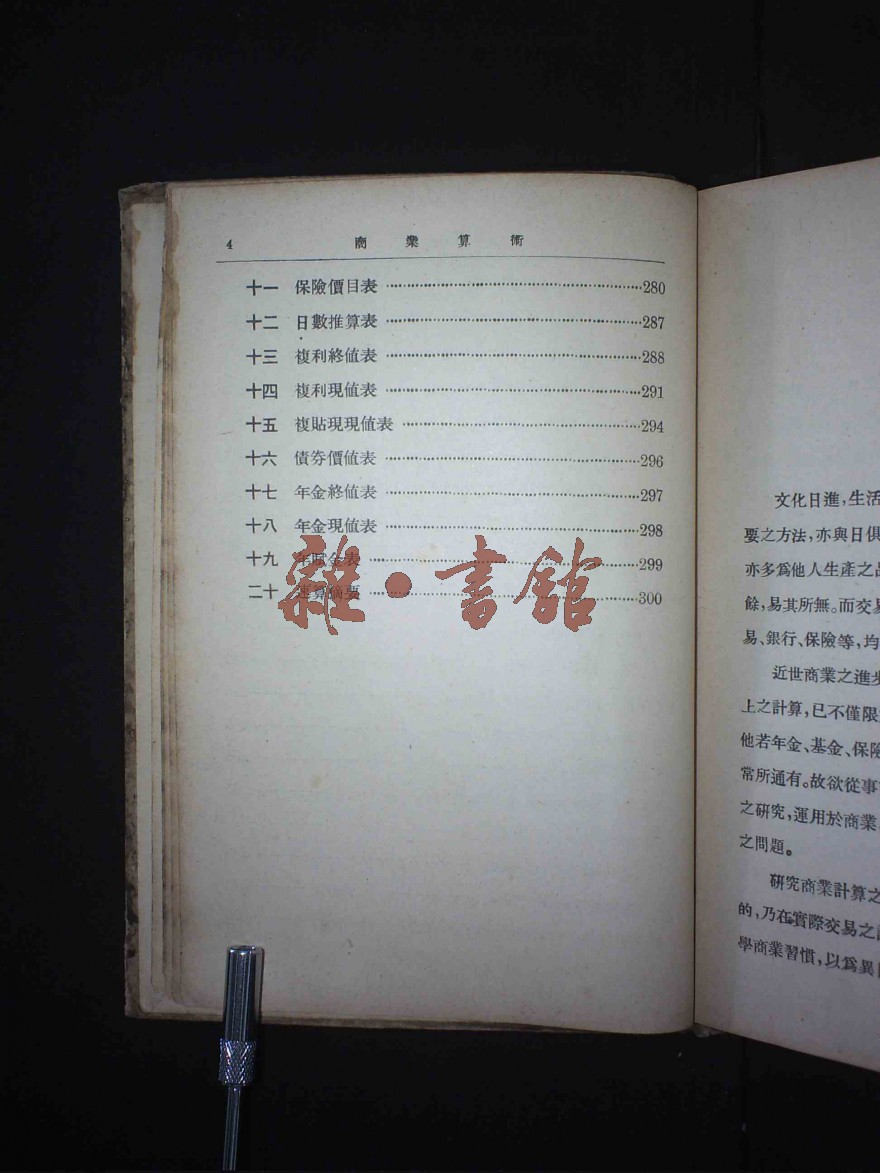 4 商業算術
十一 保險價目表 280
十二 日數推算表 287
十三 複利終值表 288
十四 複利現值表 291
十五 複貼現現值表 294
十六 債券價值表 296
十七 年金終值表 297
十八 年金現值表 298
十九 年賦金表 299
二十 速算摘要 300
雜·書館
文化日進,生活
要之方法,亦與日俱
亦多爲他人生產之品
餘,易其所無。而交易
易、銀行、保險等,均
近世商業之進步
上之計算,已不僅限
他若年金、基金、保險
常所通有。故欲從事
之研究,運用於商業
之問題。
研究商業計算之
的,乃在實際交易之
學商業習慣,以爲異